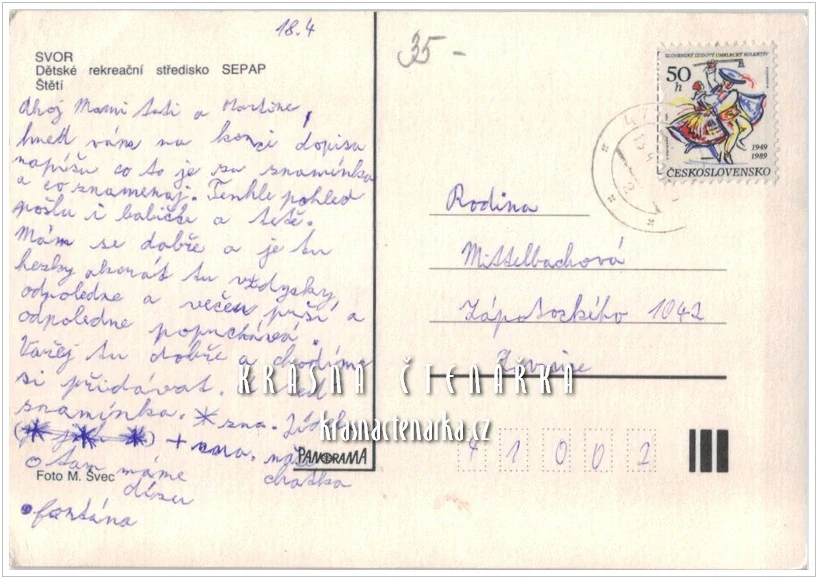 18.4
35 -
SVOR
Dětské rekreační středisko SEPAP
Štětí
Ahoj Mami tati a Martine,
hned vám na konci dopisu
napíšu co to je za znamínka
a co znamenaj. Tenhle pohled
pošlu i babičce a tetě.
Mám se dobře a je tu
hezky akorát tu vždycky
odpoledne a večer prší a
odpoledne popruchává.
Vařej tu dobře a chodíme
si přidávat.
znamínka. * zna. Jídel
+ zna. naše
o tam máme chatka
Foto M. Švec
• fontána
PANORAMA
SLOVENSKÝ ĽUDOVÝ UMELECKÝ KOLEKTÍV
50 h
1949
1989
ČESKOSLOVENSKO
Rodina
Mittelbachová
Zápotockého 1042
47 002
KRÁSNÁ ČTENÁŘKA
krasnactenarka.cz